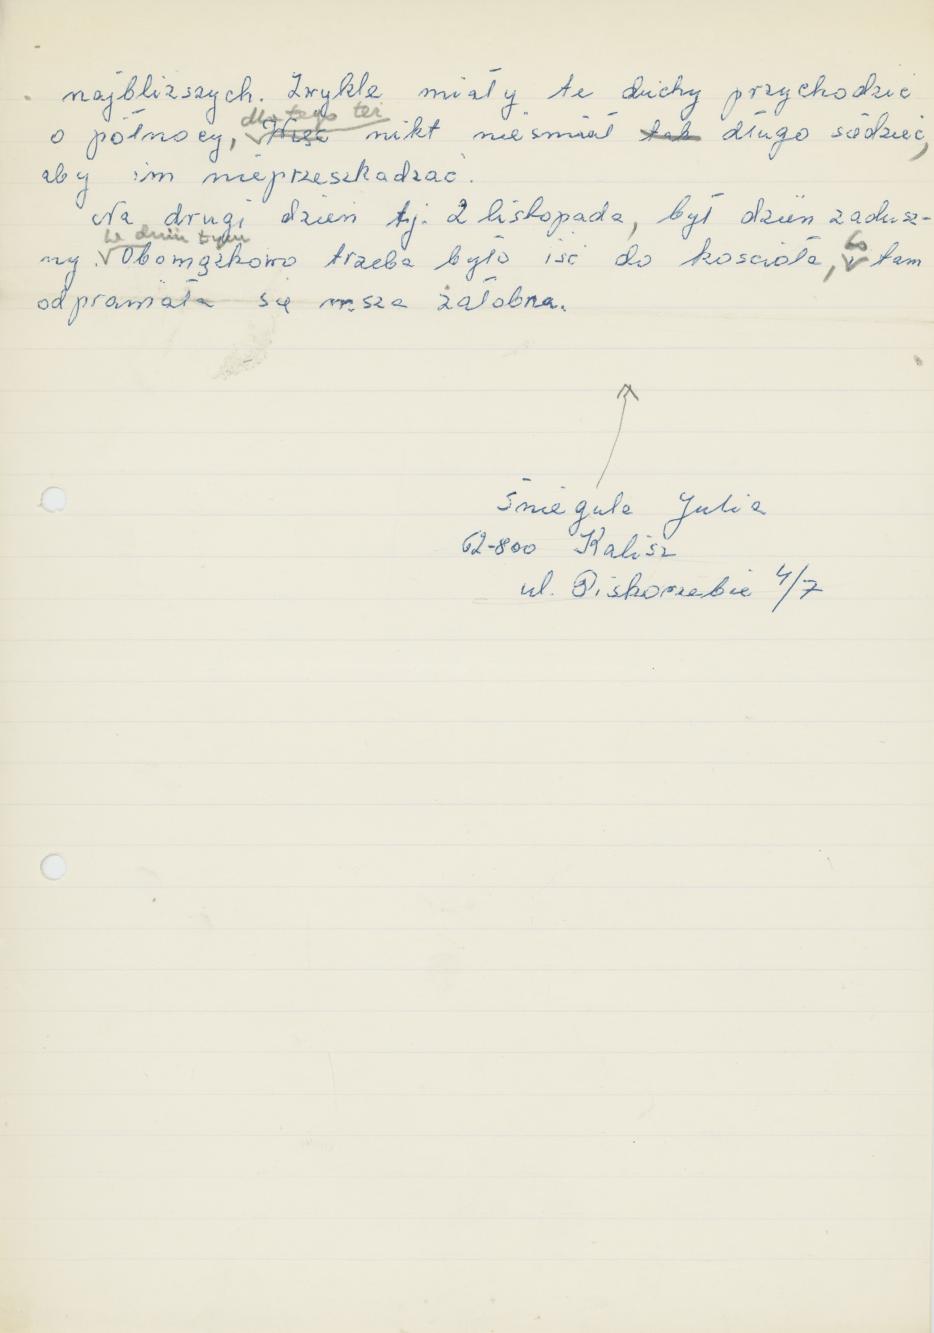 najbliższych. Zwykle miały te duchy przychodzić
dla tego też
o północy, Więc nikt nieśmiał tak długo siedzieć,
aby im nieprzeszkadzać.
Na drugi dzień tj. 2 listopada, był dzień zadusz-
w dniu tym
ny. Obowiązkowo trzeba było iść do kościoła, bo tam
odprawiała się msza żałobna.
Śnieguła Julia
62-800 Kalisz
ul. Piskorzebie 4/7